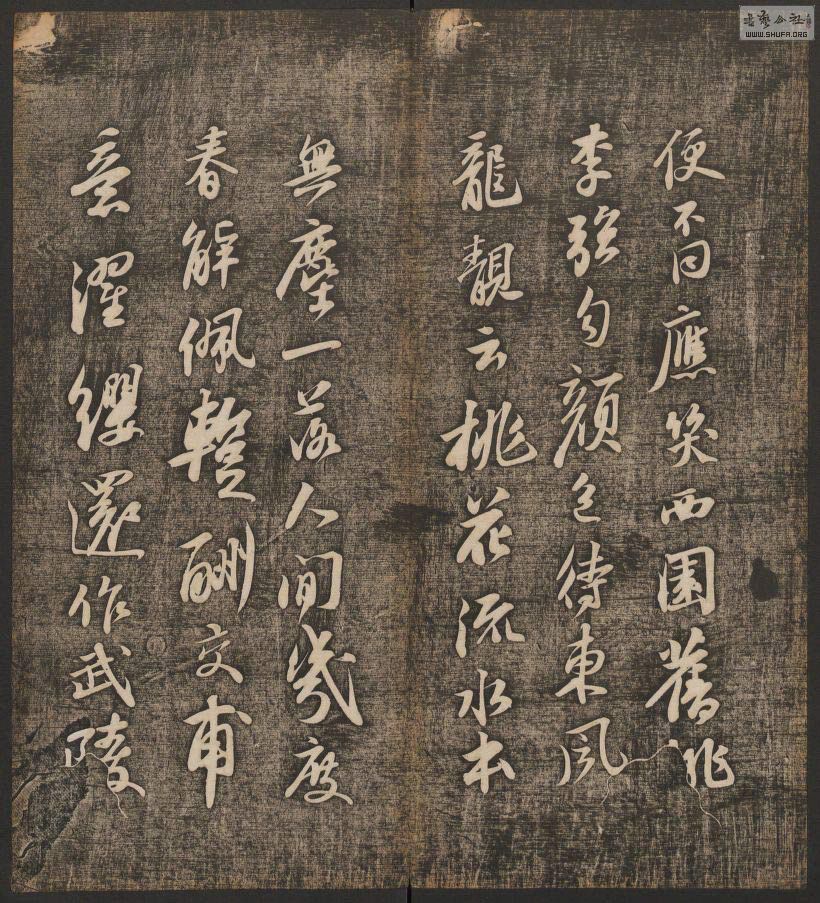 便不同應笑西園舊桃
李強勻顏色待東風
龍靚云桃花流水本
無塵一落人間幾度
春解佩蹔酬交甫
意濯纓還作武陵
书艺公社
WWW.SHUFA.ORG